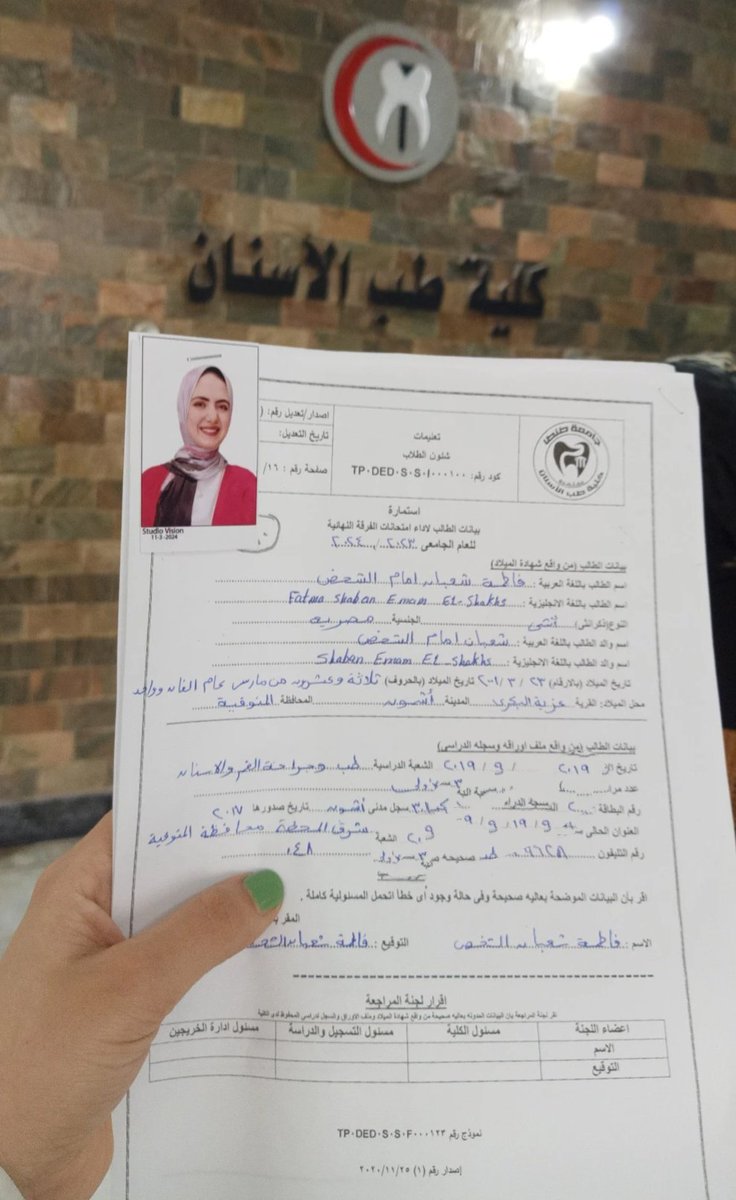 كلية طب الاسنان
Studio Vision
11-3-2024
اصدار/تعديل رقم: (
تاريخ التعديل:
صفحة رقم :
تعليمات
شئون الطلاب
كود رقم: TP٠DED٠S٠S٠I٠٠٠١٠٠
جامعة طنطا
كلية طب الأسنان
استمارة
بيانات الطالب لاداء امتحانات الفرقة النهائية
للعام الجامعى ٢٠٢٣ / ٢٠٢٤
بيانات الطالب (من واقع شهادة الميلاد)
اسم الطالب باللغة العربية : فاطمة شعبان امام الشخص
اسم الطالب باللغة الانجليزية : Fatma Shaban Emam EL-Shakhs
النوع(ذكر/انثى) أنثى الجنسية مصرية
اسم والد الطالب باللغة العربية : شعبان امام الشخص
اسم والد الطالب باللغة الانجليزية : Shaban Emam EL-Shakhs
تاريخ الميلاد (بالارقام) ٢٣ / ٣ / ٢٠٠١ تاريخ الميلاد (بالحروف) ثلاثة وعشرون من مارس عام الفان وواحد
محل الميلاد: القرية عزبة البكرى المدينة أشمون المحافظة المنوفية
بيانات الطالب (من واقع ملف اوراقه وسجله الدراسى)
تاريخ ٢٠١٩ / ٩ / ٢٠١٩ الشعبة الدراسية طب وجراحة الفم والاسنان
عدد
رقم البطاقة سجل مدنى أشمون تاريخ صدورها ٢٠١٧
العنوان الحالى محافظة المنوفية
رقم التليفون ٠٤٨
اقر بأن البيانات الموضحة بعاليه صحيحة وفى حالة وجود أى خطأ اتحمل المسئولية كاملة .
المقر
الاسم : فاطمة شعبان الشخص التوقيع : فاطمة شعبان
اقرار لجنة المراجعة
اقر لجنة المراجعة بان البيانات المدونه بعاليه صحيحة من واقع شهادة الميلاد وملف الاوراق والسجل الدراسى المحفوظ لدى الكلية
اعضاء اللجنة مسئول الكلية مسئول التسجيل والدراسة مسئول ادارة الخريجين
الاسم
التوقيع
نموذج رقم TP٠DED٠S٠S٠F٠٠٠١٢٣
اصدار رقم (١) ٢٠٢٠/١١/٢٥